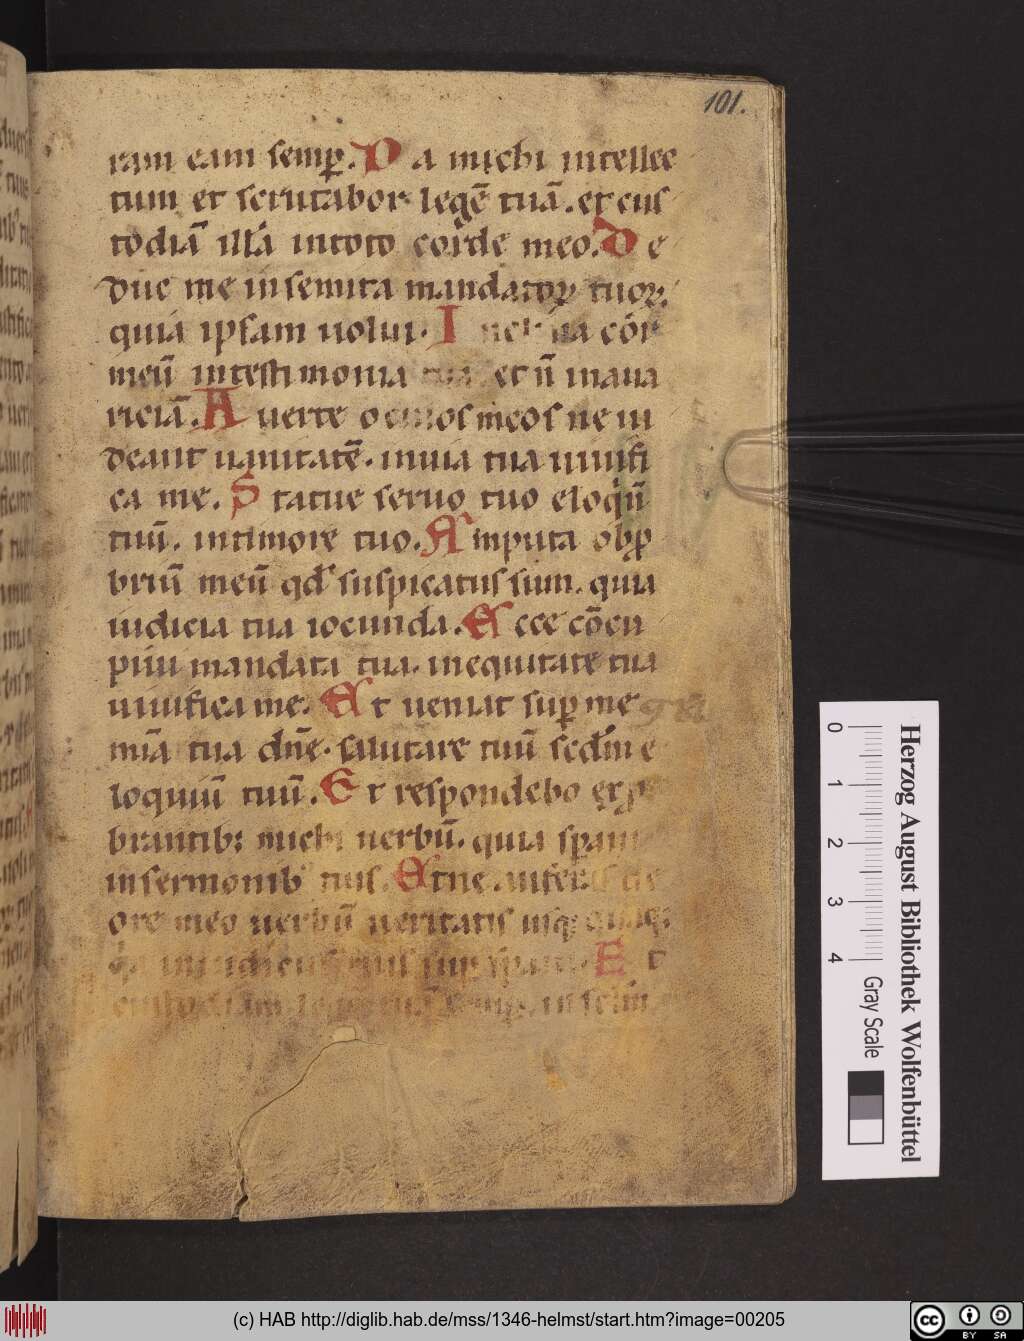 101.
ram eam semꝑ. Da michi intellec
tum et scrutabor legē tuā. et cus
todiā illā intoto corde meo. De
duc me insemita mandatoꝝ tuoꝝ.
quia ipsam uolui. Inclina cor
meū intestimonia tua et n̄ inaua
riciā. Auerte oculos meos ne ui
deant uanitatē. inuia tua uiuifi
ca me. Statue seruo tuo eloqū
tuū. intimore tuo. Amputa obꝓ
briū meū qd̓ suspicatus sum. quia
iudicia tua iocunda. Ecce cōcu
piui mandata tua. inequitate tua
uiuifica me. Et ueniat suꝑ me
mīa tua dn̄e. salutare tuū scd̄m e
loquiū tuū. Et respondebo exꝓ
brantib; michi uerbū. quia
insermonib' tuis. Et ne
ore meo uerbū ueritatis usq;
Et
Herzog August Bibliothek Wolfenbüttel
0 1 2 3 4 Gray Scale
(c) HAB http://diglib.hab.de/mss/1346-helmst/start.htm?image=00205
cc BY SA